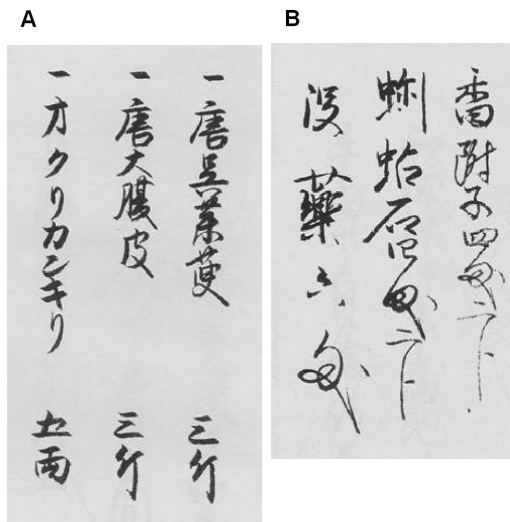 A
一 唐呉茱萸 三斤
一 唐大腹皮 三斤
一 オクリカンキリ 五両
B
香附子四匁二卜
蝲蛄石 匁二卜
没藥六匁